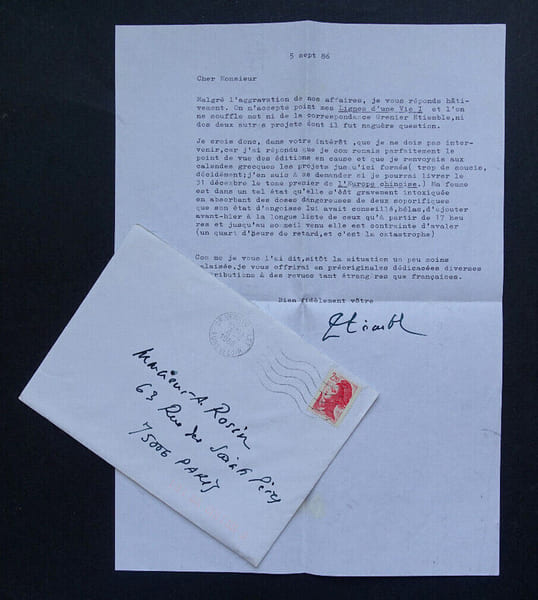 5 sept 86
Cher Monsieur
Malgré l'aggravation de nos affaires, je vous réponds hâti-
vement. On n'accepte point mes Lignes d'une Vie I et l'on
ne souffle mot ni de la correspondance Grenier Etiemble,ni
des deux autres projets dont il fut naguère question.
Je crois donc, dans votre intérêt,que je ne dois pas inter-
venir,car j'ai répondu que je connais parfaitement le
point de vue des éditions en cause et que je renvoyais aux
calendes grecques les projets jusqu'ici formés( trop de soucis,
décidément;j'en suis à me demander si je pourrai livrer le
31 décembre le tome premier de l'Europe chinoise.) Ma femme
est dans un tel état qu'elle s'est gravement intoxiquée
en absorbant des doses dangereuses de deux soporifiques
que son état d'angoisse lui avait conseillé,hélas,d'ajouter
avant-hier à la longue liste de ceux qu'à partir de 17 heu
res et jusqu'au sommeil venu elle est contrainte d'avaler
(un quart d'heure de retard,et c'est la catastrophe)
Com me je vous l'ai dit,sitôt la situation un peu moins
malaisée,je vous offrirai en préoriginales dédicacées diverses
contributions à des revues tant étrangères que françaises.
Bien fidèlement vôtre
Etiemble
2,20
Monsieur A. Rosin
63 Rue des Saints Pères
75006 PARIS